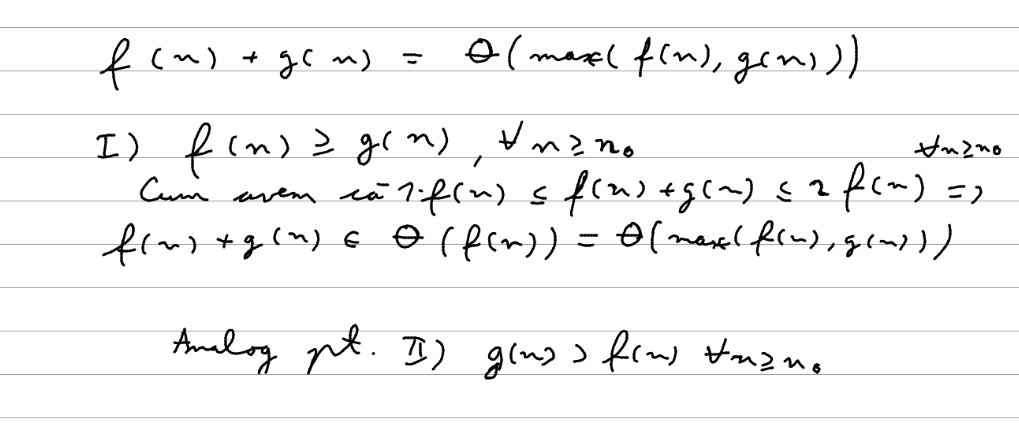 f(n) + g(n) = Θ(max(f(n), g(n)))
I) f(n) ≥ g(n), ∀n≥n₀
∀n≥n₀
Cum avem că 1·f(n) ≤ f(n)+g(n) ≤ 2f(n) =>
f(n)+g(n) ∈ Θ(f(n)) = Θ(max(f(n), g(n)))
Analog pt. II) g(n) > f(n) ∀n≥n₀